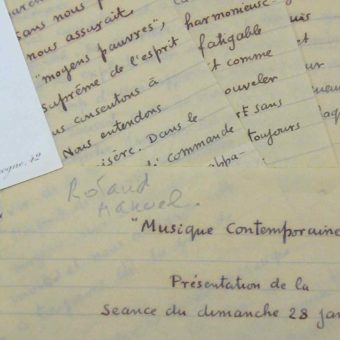 sans nous p
nous assurait
"moyens pauvres",
suprême de l'esprit
us consentons à
Nous entendons
isère. Dans le
commande
harmonieuse-
fatigable
t comme
ouveler
et sans
toujours
appa-
puis
ogne, 12
Roland
Manuel.
"Musique Contemporaine
Présentation de la
Seance du dimanche 28 jan